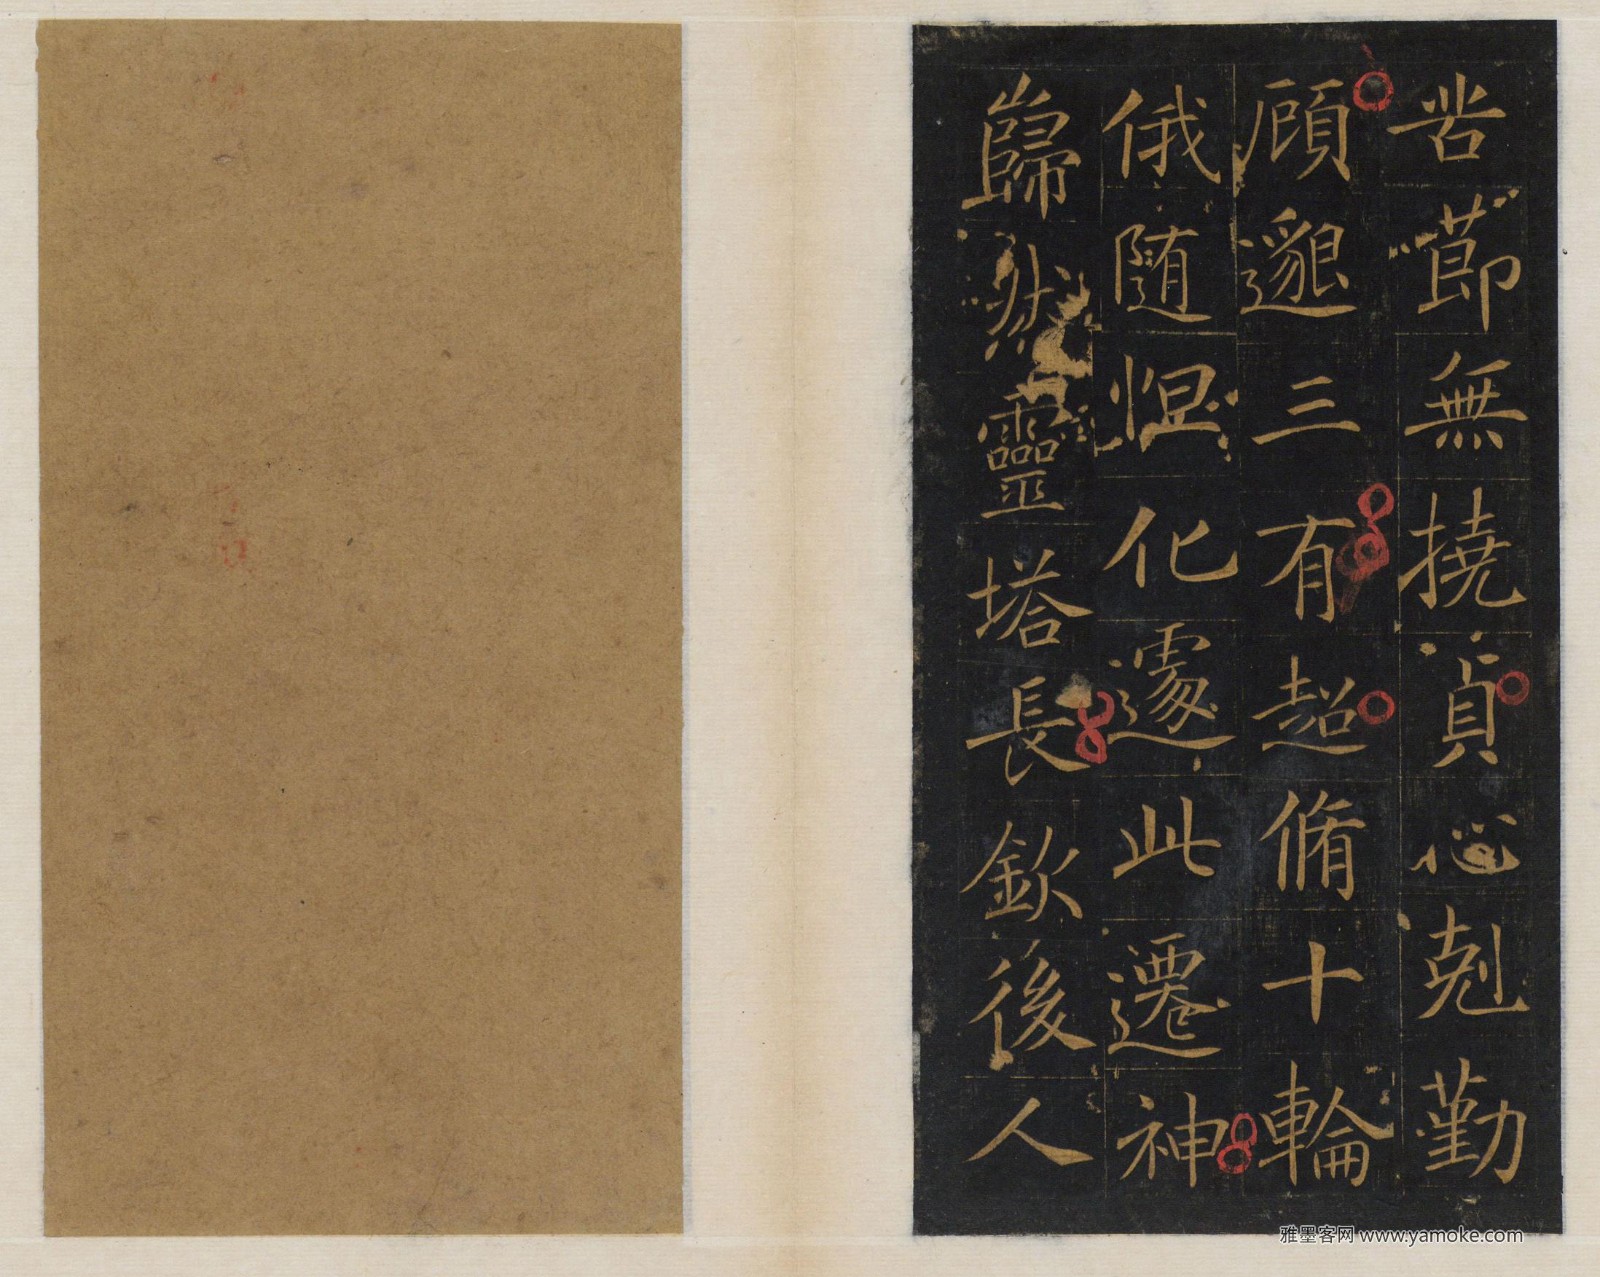 苦節無撓貞心剋勤
顧邈三有超脩十輪
俄随怛化遽此遷神
巋然靈塔長欽後人
雅墨客网 www.yamoke.com